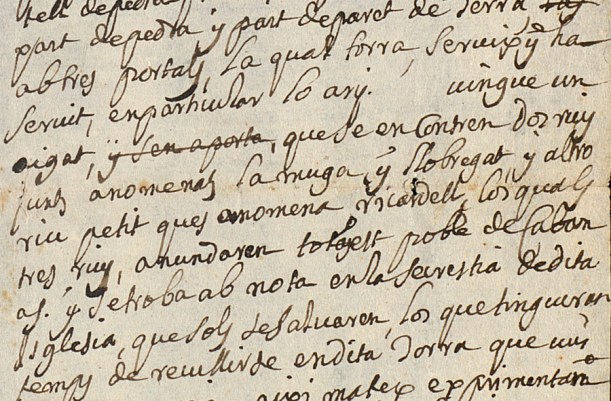 part de pedra y part de paret de terra
ab tres portals, la qual torra, serveix, y ha
servit, en particular lo any. vingue un
aigat, y s'en aporta, que se en contren dos riuy
junts anomenats la muga, y llobregat, y altro
riu petit ques anomena ricardell, los quals
tres riuy, anundaren tot aqell poble de Caban
as. y se troba ab nota en la secrestia de dita
Isglesia, que sols se salvaren, los que tingueren
temps de recullirse en dita torra que vuy